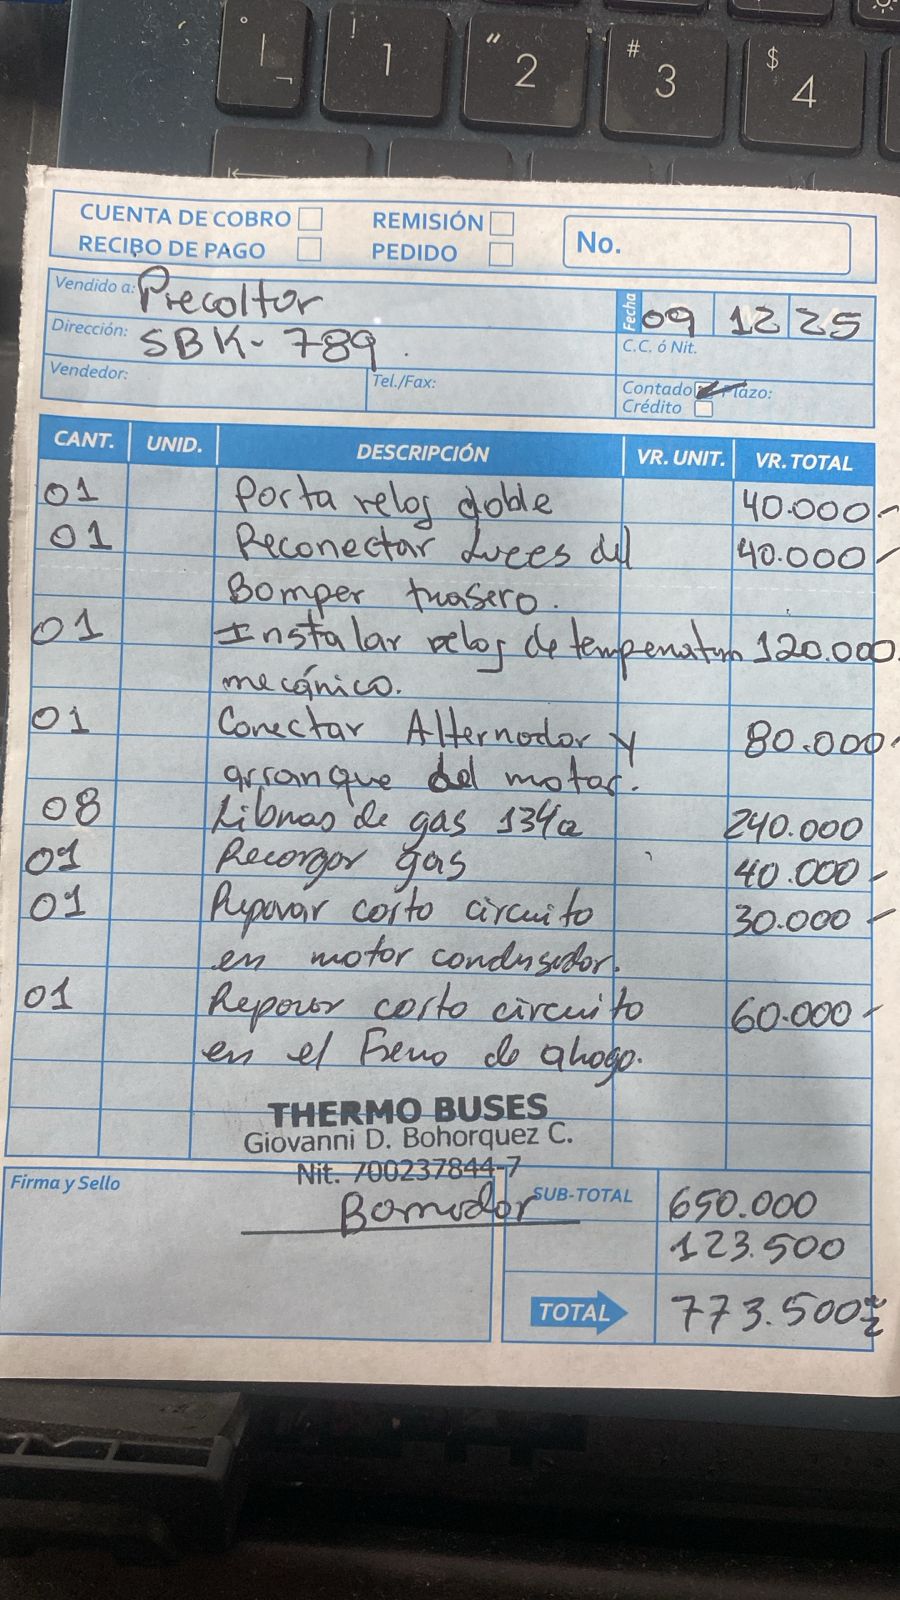 1
! 1
" 2
# 3
$ 4
CUENTA DE COBRO REMISIÓN
RECIBO DE PAGO PEDIDO
No.
Vendido a: Precoltur
Fecha 09 12 25
Dirección: SBK-789.
C.C. ó Nit.
Vendedor: Tel./Fax:
Contado Plazo:
Crédito
CANT. UNID. DESCRIPCIÓN VR. UNIT. VR. TOTAL
01 Porta reloj doble 40.000
01 Reconectar Luces del 40.000
Bomper trasero.
01 Instalar reloj de temperatura 120.000
mecánico.
01 Conectar Alternador y 80.000
arranque del motor.
08 Libras de gas 134a 240.000
01 Recargar gas 40.000
01 Reparar corto circuito 30.000
en motor condensador.
01 Reparar corto circuito 60.000
en el Freno de ahogo.
THERMO BUSES
Giovanni D. Bohorquez C.
Nit. 700237844-7
Firma y Sello
SUB-TOTAL 650.000
123.500
TOTAL 773.500